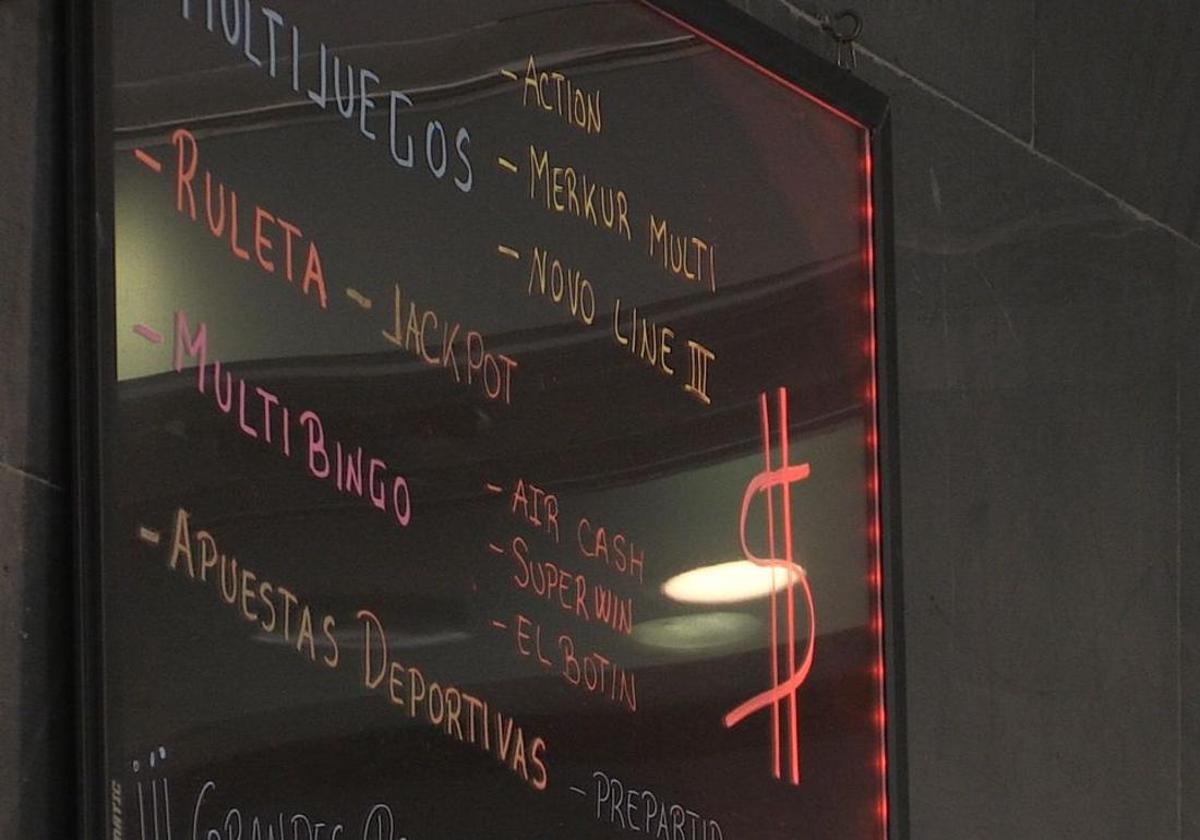 MULTIJUEGOS
- ACTION
- MERKUR MULTI
- NOVO LINE III
- RULETA - JACKPOT
- MULTIBINGO
- AIR CASH
- SUPERWIN
- EL BOTIN
- APUESTAS DEPORTIVAS
- PREPARTID
¡¡¡ GRANDES
$